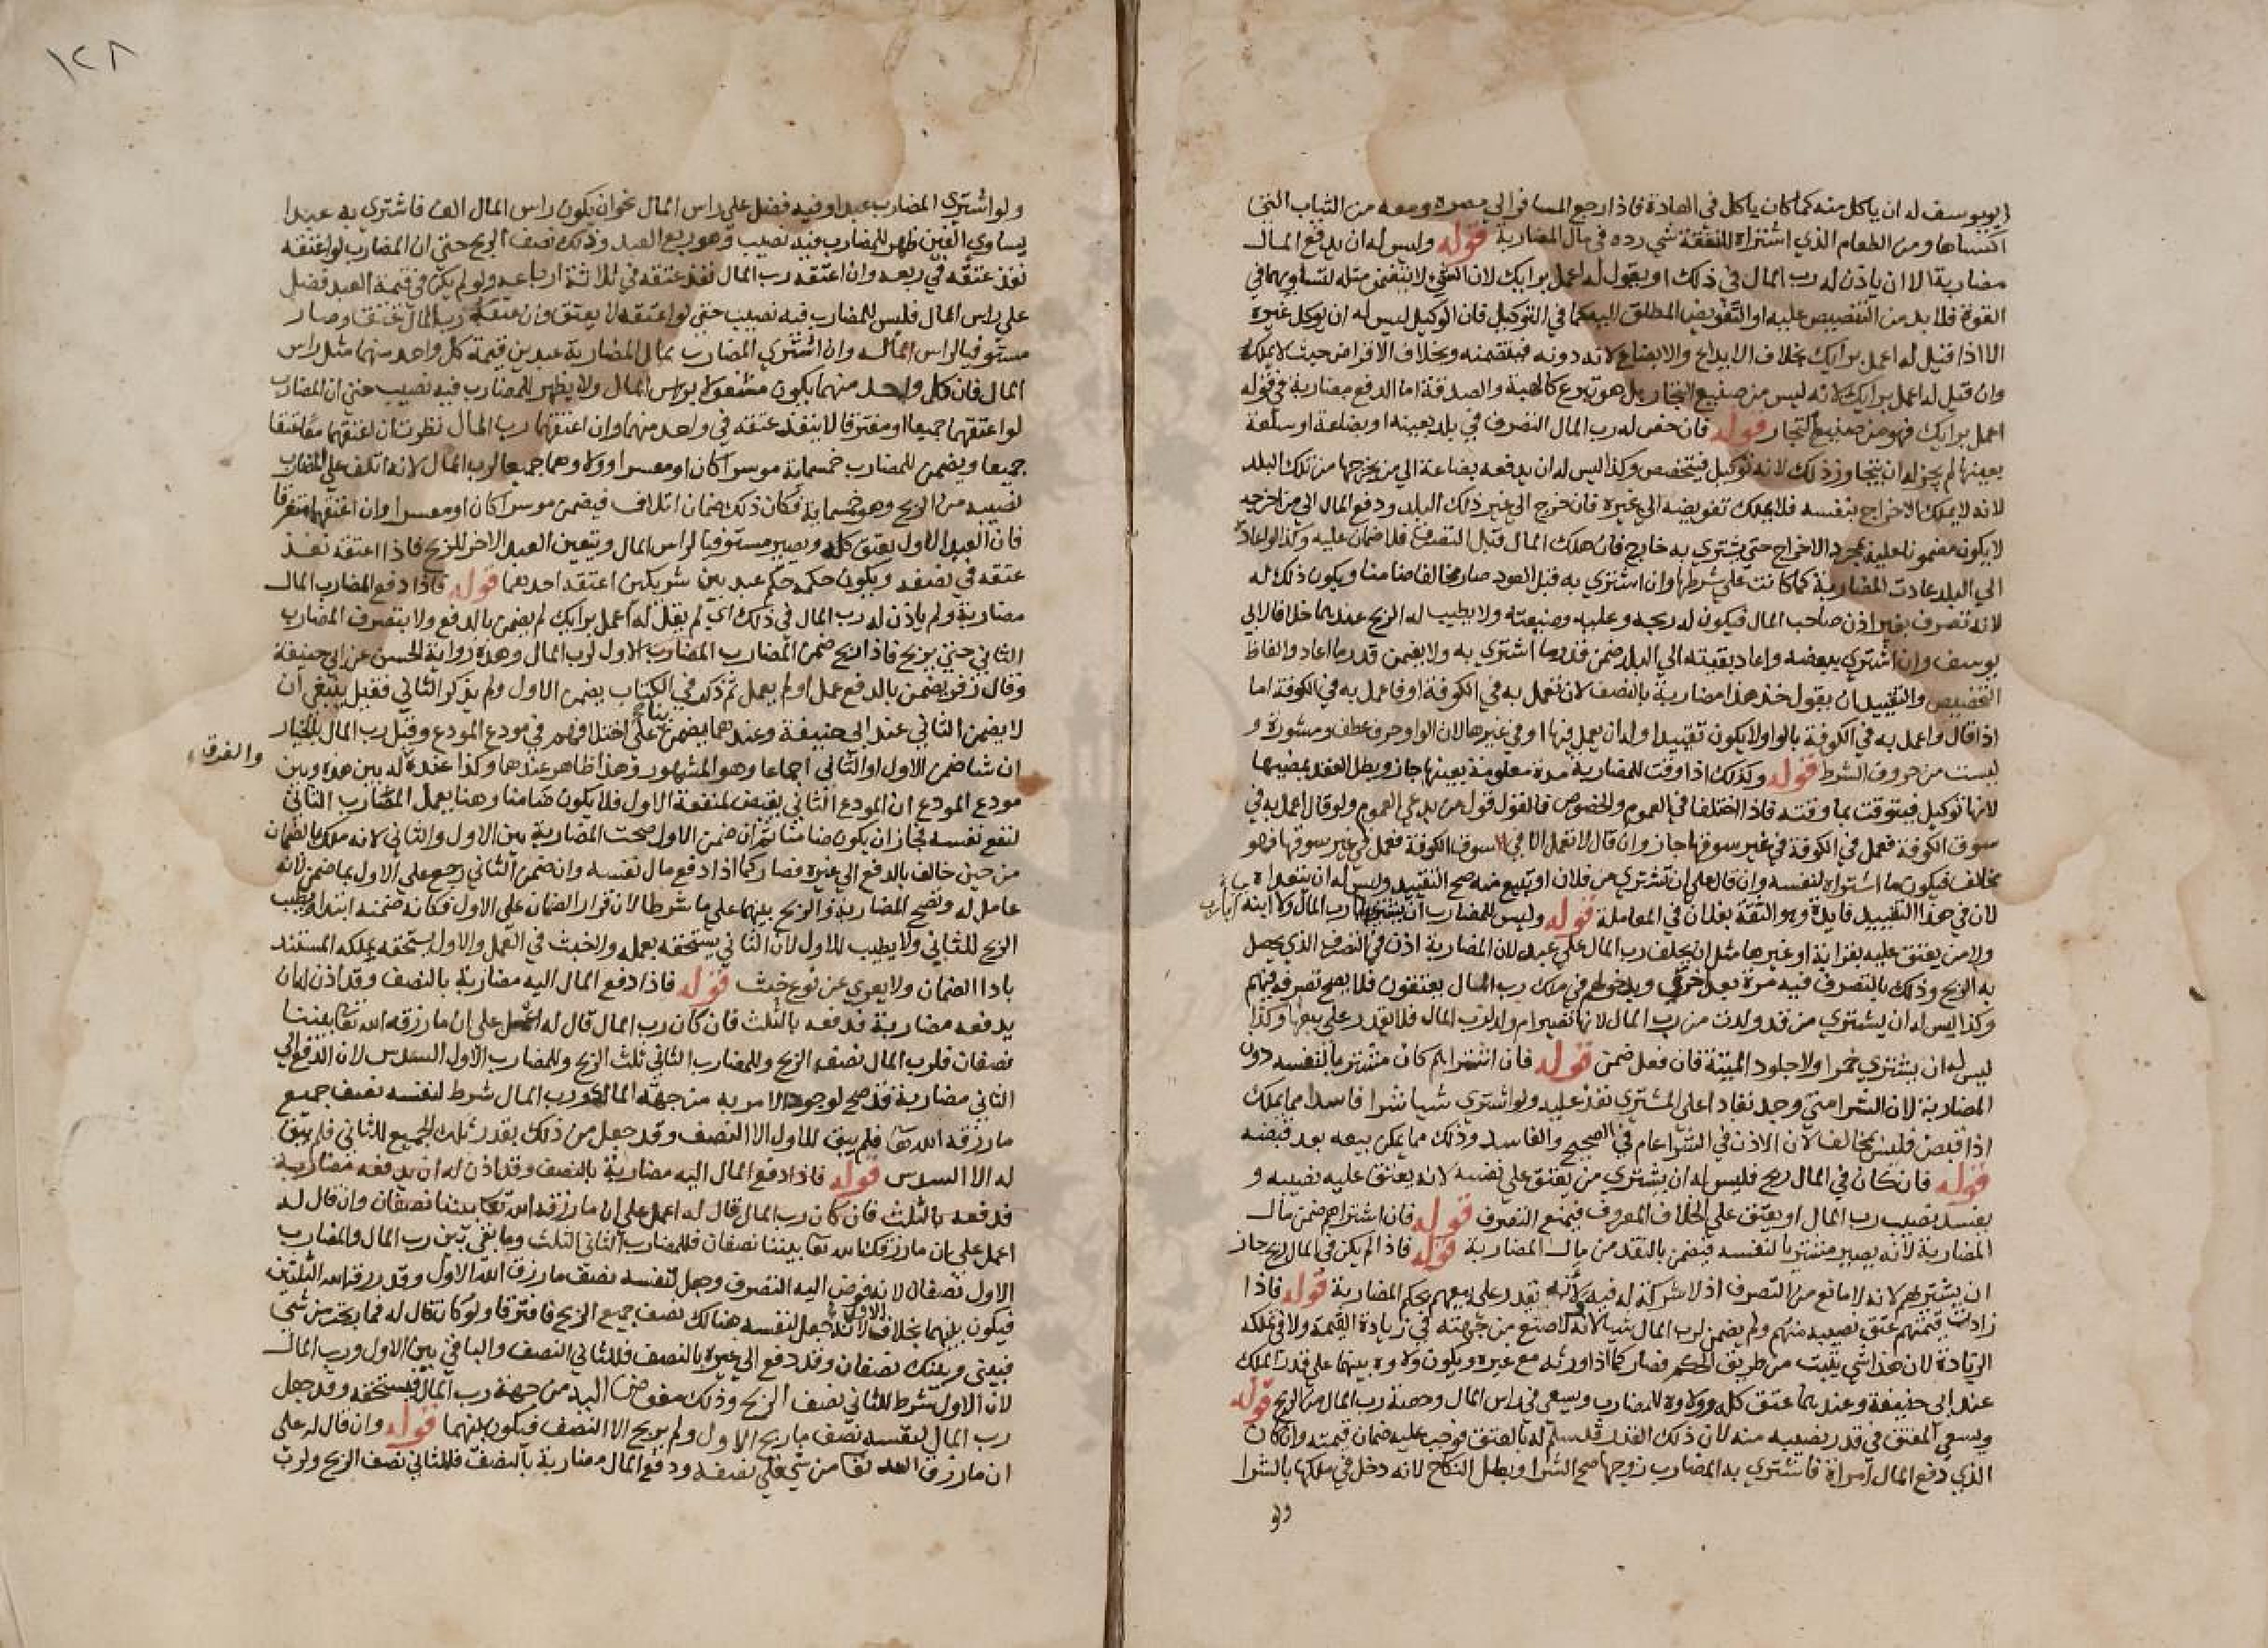 ابويوسف له ان ياكل منه كما كان ياكل في العادة فاذا رجع المسافر الي مصره ومعه من الثياب التي
اكتساها ومن الطعام الذي اشتراه للنفقة شي رده في مال المضاربة قوله وليس له ان يدفع المال
مضاربة الا ان ياذن له رب المال في ذلك او يقول له اعمل برايك لان الشي لا يتضمن مثله لتساويهما في
القوة فلا بد من التنصيص عليه او التفويض المطلق اليه كما في التوكيل فان الوكيل ليس له ان يوكل غيره
الا اذا قيل له اعمل برايك بخلاف الايداع والابضاع لانه دونه فيتضمنه وبخلاف الاقراض حيث لا يملكه
وان قيل له اعمل برايك لانه ليس من صنيع التجار بل هو تبرع كالهبة والصدقة اما الدفع مضاربة في قوله
اعمل برايك فهو من صنيع التجار قوله فان خص له رب المال التصرف في بلد بعينه او بضاعة او سلعة
بعينها لم يجز له ان يتجاوز ذلك لانه توكيل فيتخصص وكذا ليس له ان يدفعه بضاعة الي من يخرجها من تلك البلد
لانه لا يملك الاخراج بنفسه فلا يملك تفويضه الي غيره فان خرج الي غير ذلك البلد ودفع المال الي من اخرجه
لا يكون مضمونا عليه بمجرد الاخراج حتي يشتري به خارج فان هلك المال قبل التصرف فلا ضمان عليه وكذا لو اعاده
الي البلد عادت المضاربة كما كانت علي شرطها وان اشتري به قبل العود صار مخالفا ضامنا ويكون ذلك له
لانه تصرف بغير اذن صاحب المال فيكون له ربحه وعليه وضيعته ولا يطيب له الربح عندهما خلافا لابي
يوسف وان اشتري ببعضه واعاد بقيته الي البلد ضمن قدر ما اشتري به ولا يضمن قدر ما اعاد والفاظ
التخصيص والتقييد ان يقول خذ هذا مضاربة بالنصف لان تعمل به في الكوفة او فاعمل به في الكوفة اما
اذا قال واعمل به في الكوفة بالواو لا يكون تقييدا وله ان يعمل فيها او في غيرها لان الواو حرف عطف ومشورة و
ليست من حروف الشرط قوله وكذلك اذا وقت للمضاربة مدة معلومة بعينها جاز ويبطل العقد بمضيها
لانها توكيل فيتوقت بما وقته فاذا اختلفا في العموم والخصوص فالقول قول من يدعي العموم ولو قال اعمل به في
سوق الكوفة فعمل في الكوفة في غير سوقها جاز وان قال لا تعمل الا في سوق الكوفة فعمل في غير سوقها فهو
مخالف فيكون ما اشتراه لنفسه وان قال علي ان تشتري من فلان او تبيع منه صح التقييد وليس له ان يتعداه
لان في هذا التقييد فايدة وهو الثقة بفلان في المعاملة قوله وليس للمضارب ان يشتري اب رب المال ولا ابنه
ولا من يعتق عليه بقرابة او غيرها مثل ان يحلف رب المال علي عبد لان المضاربة اذن في التصرف الذي يحصل
به الربح وذلك بالتصرف فيه مرة بعد اخري وبدخولهم في ملك رب المال يعتقون فلا يصح تصرفه فيهم
وكذا ليس له ان يشتري من قد ولدت من رب المال لانها تصير ام ولد لرب المال فلا يقدر علي بيعها وكذا
ليس له ان يشتري خمرا ولا جلود الميتة فان فعل ضمن قوله فان اشتراهم كان مشتريا لنفسه دون
المضاربة لان الشرا متي وجد نفاذا علي المشتري نفذ عليه ولو اشتري شيا شرا فاسدا مما يملك
اذا قبض فليس بمخالف لان الاذن في الشرا عام في الصحيح والفاسد وذلك مما يمكن بيعه بعد قبضه
قوله فان كان في المال ربح فليس له ان يشتري من يعتق علي نفسه لانه يعتق عليه نصيبه و
يفسد نصيب رب المال او يعتق علي الخلاف المعروف فيمتنع التصرف قوله فان اشتراهم ضمن مال
المضاربة لانه يصير مشتريا لنفسه فيضمن بالنقد من مال المضاربة قوله فاذا لم يكن في المال ربح جاز
ان يشتريهم لانه لا مانع من التصرف اذ لا شركة له فيه ولانه يقدر علي بيعهم بحكم المضاربة قوله فاذا
زادت قيمتهم عتق نصيبه منهم ولم يضمن لرب المال شيا لانه لا صنع من جهته في زيادة القيمة ولا في تملكه
الزيادة لان هذا شي يثبت من طريق الحكم فصار كما اذا ورثه مع غيره ويكون ولاوه بينهما علي قدر الملك
عند ابي حنيفة وعندهما عتق كله وولاوه للمضارب ويسعي في راس المال وحصة رب المال من الربح قوله
ويسعي المعتق في قدر نصيبه منه لان ذلك القدر قد سلم له بالعتق فوجب عليه ضمان قيمته وان كان
الذي دفع المال امراة فاشتري به المضارب زوجها صح الشرا وبطل النكاح لانه دخل في ملكها بالشرا
ولو
١٢٨
ولو اشتري المضارب عبدا وفيه فضل علي راس المال نحو ان يكون راس المال الف فاشتري به عبدا
يساوي الفين ظهر للمضارب فيه نصيب وهو ربع العبد وذلك نصف الربح حتي ان المضارب لو اعتقه
نفذ عتقه في ربعه وان اعتقه رب المال نفذ عتقه في ثلاثة ارباعه ولو لم يكن في قيمة العبد فضل
علي راس المال فليس للمضارب فيه نصيب حتي لو اعتقه لا يعتق وان عتقه رب المال عتق وصار
مستوفيا لراس المال وان اشتري المضارب بمال المضاربة عبدين قيمة كل واحد منهما مثل راس
المال فان كل واحد منهما يكون مشغولا براس المال ولا يظهر للمضارب فيه نصيب حتي ان المضارب
لو اعتقهما جميعا او مفترقا لا ينفذ عتقه في واحد منهما وان اعتقهما رب المال نظرت ان اعتقهما معا عتقا
جميعا ويضمن للمضارب خمسماية موسرا كان او معسرا وولاوهما جميعا لرب المال لانه اتلف علي المضارب
نصيبه من الربح وهو خمسماية فكان ذلك ضمان اتلاف فيضمن موسرا كان او معسرا وان اعتقهما متفرقا
فان العبد الاول يعتق كله ويصير مستوفيا لراس المال ويتعين العبد الاخر للربح فاذا اعتقه نفذ
عتقه في نصفه ويكون حكمه حكم عبد بين شريكين اعتقه احدهما قوله فاذا دفع المضارب المال
مضاربة ولم ياذن له رب المال في ذلك اي لم يقل له اعمل برايك لم يضمن بالدفع ولا بتصرف المضارب
الثاني حتي يربح فاذا ربح ضمن المضارب المضارب الاول لرب المال وهذه رواية الحسن عن ابي حنيفة
وقال زفر يضمن بالدفع عمل او لم يعمل ثم ذكر في الكتاب يضمن الاول ولم يذكر الثاني فقيل ينبغي ان
لا يضمن الثاني عند ابي حنيفة وعندهما يضمن بناء علي اختلافهم في مودع المودع وقيل رب المال بالخيار
ان شا ضمن الاول او الثاني اجماعا وهو المشهور وهذا ظاهر عندهما وكذا عنده له بين هذه وبين
والفرق
مودع المودع ان المودع الثاني يقبض لمنفعة الاول فلا يكون ضامنا وهنا يعمل المضارب الثاني
لنفع نفسه فجاز ان يكون ضامنا ثم ان ضمن الاول صحت المضاربة بين الاول والثاني لانه ملكه بالضمان
من حين خالف بالدفع الي غيره فصار كما اذا دفع مال نفسه وان ضمن الثاني رجع علي الاول بما ضمن لانه
عامل له وتصح المضاربة والربح بينهما علي ما شرطا لان قرار الضمان علي الاول فكانه ضمنه ابتدا ويطيب
الربح للثاني ولا يطيب للاول لان الثاني يستحقه بعمله والخبث في العمل والاول يستحقه بملكه المستند
باداء الضمان ولا يعري عن نوع خبث قوله فاذا دفع المال اليه مضاربة بالنصف وقد اذن له ان
يدفعه مضاربة فدفعه بالثلث فان كان رب المال قال له اعمل علي ان ما رزقه الله تعا بيننا
نصفان فلرب المال نصف الربح وللمضارب الثاني ثلث الربح وللمضارب الاول السدس لان الدفع الي
الثاني مضاربة قد صح لوجود الامر به من جهة المالك ورب المال شرط لنفسه نصف جميع
ما رزقه الله تعا فلم يبق للاول الا النصف وقد جعل من ذلك بقدر ثلث الجميع للثاني فلم يبق
له الا السدس قوله فاذا دفع المال اليه مضاربة بالنصف وقد اذن له ان يدفعه مضاربة
فدفعه بالثلث فان كان رب المال قال له اعمل علي ان ما رزقه الله تعا بيننا نصفان وان قال له
اعمل علي ان ما رزقك الله تعا بيننا نصفان فللمضارب الثاني الثلث وما بقي بين رب المال والمضارب
الاول نصفان لانه فوض اليه التصرف وجعل لنفسه نصف ما رزق الله الاول وقد رزقه الله الثلثين
فيكون بينهما بخلاف الاول لانه جعل لنفسه هنالك نصف جميع الربح فافترقا ولو كان قال له فما ربحت من شي
فبيني وبينك نصفان وقد دفع الي غيره بالنصف فللثاني النصف والباقي بين الاول ورب المال
لان الاول شرط للثاني نصف الربح وذلك مفوض اليه من جهة رب المال فيستحقه وقد جعل
رب المال لنفسه نصف ما ربح الاول ولم يربح الا النصف فيكون بينهما قوله وان قال له علي
ان ما رزق الله تعا من شي فلي نصفه ودفع المال مضاربة بالنصف فللثاني نصف الربح ولرب